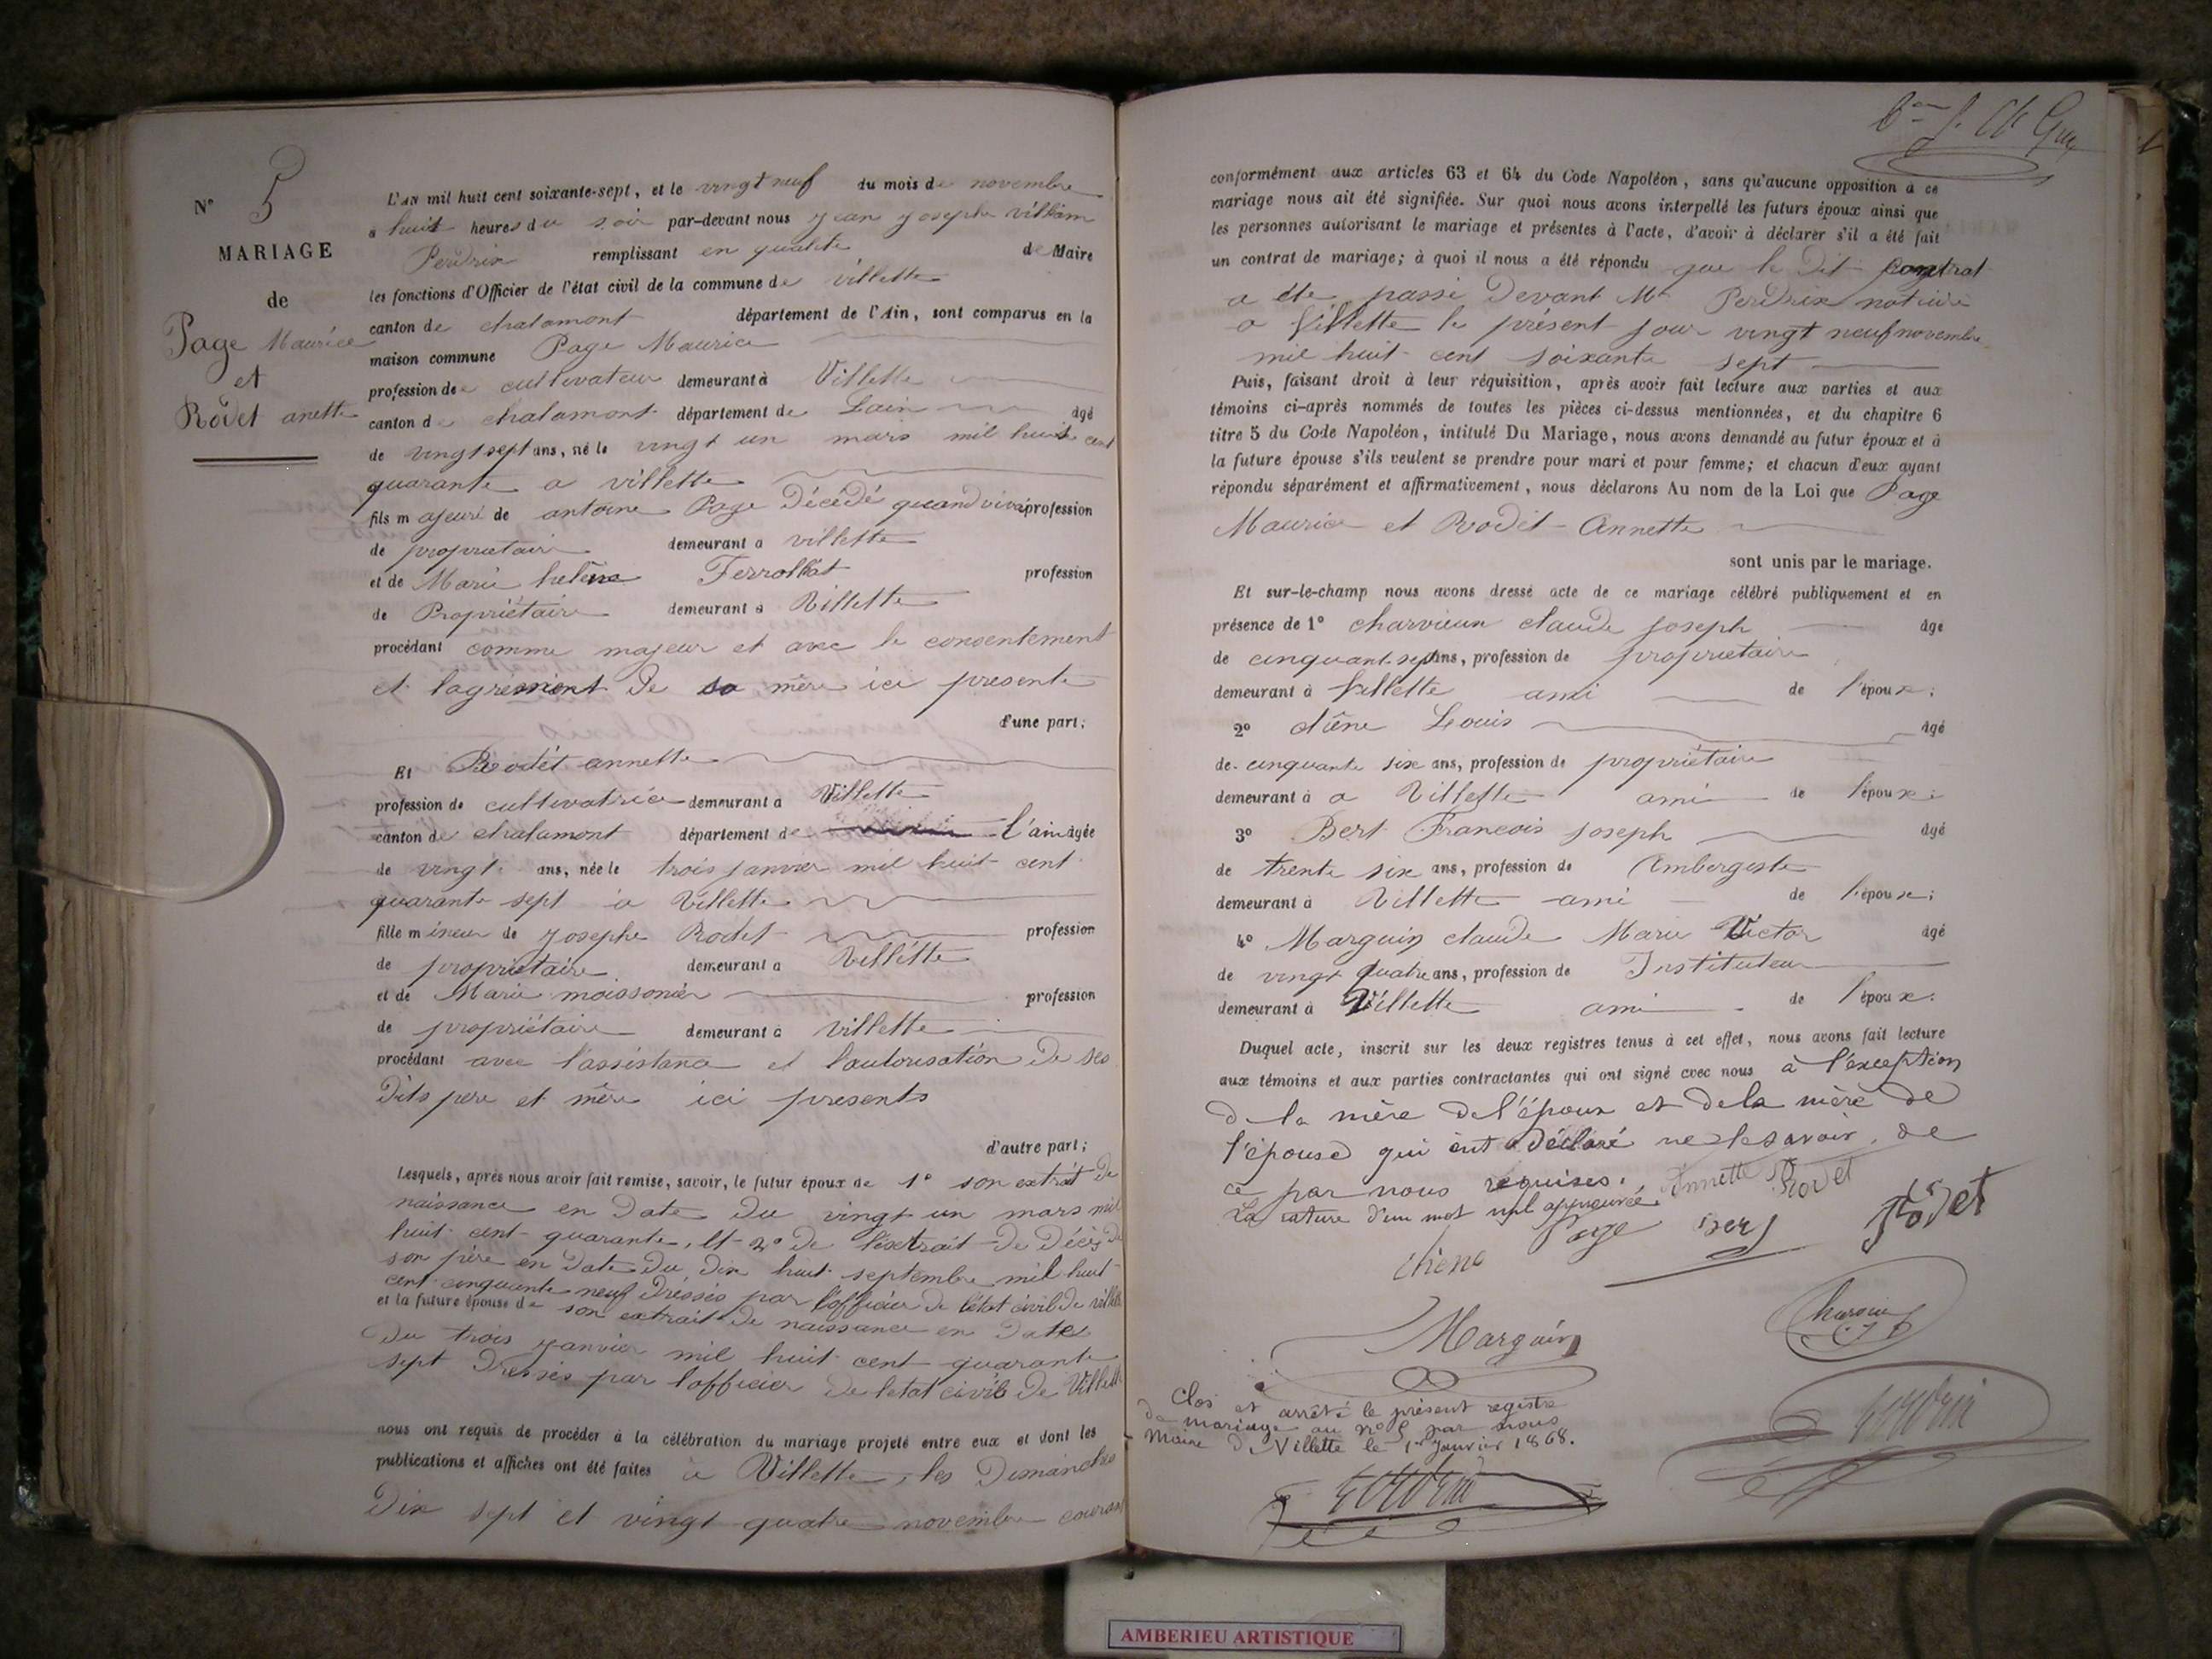 N° 5
MARIAGE
de
Page Maurice
et
Rodet anette
L'AN mil huit cent soixante-sept, et le vingt neuf du mois de novembre
a huit heures du soir par-devant nous jean joseph
Perdrix remplissant en qualite de Maire
les fonctions d'Officier de l'état civil de la commune de villette
canton de chalamont département de l'Ain, sont comparus en la
maison commune Page Maurice
profession de cultivateur demeurant à Villette
canton de chalamont département de Lain âgé
de vingt sept ans, né le vingt un mars mil huit cent
quarante a villette
fils majeur de antoine Page Décédé quand vivait profession
de proprietaire demeurant a villette
et de Marie helène Ferrollat profession
de Propriétaire demeurant a Villette
procédant comme majeur et avec le consentement
et lagrément de sa mère ici presente
d'une part;
Et Rodet annette
profession de cultivatrice demeurant a Villette
canton de chalamont département de l'ain âgée
de vingt ans, née le trois janvier mil huit cent
quarante sept a Villette
fille mineur de josephe Rodet profession
de propriétaire demeurant a Villette
et de Marie moissonier profession
de propriétaire demeurant à villette
procédant avec l'assistance et l'autorisation de ses
Dits pere et mère ici presents
d'autre part;
Lesquels, après nous avoir fait remise, savoir, le futur époux de 1° son extrait de
naissance en Date du vingt un mars mil
huit cent quarante, et 2° de l'extrait de Décès de
son père en Date du Dix huit septembre mil huit
cent cinquante neuf Dréssés par l'officier de l'état civil de villette
et la future épouse de son extrait de naissance en Date
Du trois janvier mil huit cent quarante
sept Dressés par l'officier de l'etat civil de Villette
nous ont requis de procéder à la célébration du mariage projeté entre eux et dont les
publications et affiches ont été faites a Villette, les Dimanches
Dix sept et vingt quatre novembre courant
conformément aux articles 63 et 64 du Code Napoléon, sans qu'aucune opposition à ce
mariage nous ait été signifiée. Sur quoi nous avons interpellé les futurs époux ainsi que
les personnes autorisant le mariage et présentes à l'acte, d'avoir à déclarer s'il a été fait
un contrat de mariage; à quoi il nous a été répondu que le Dit contrat
a été passé Devant Me Perdrix notaire
a Villette le présent jour vingt neuf novembre
mil huit cent soixante sept
Puis, faisant droit à leur réquisition, après avoir fait lecture aux parties et aux
témoins ci-après nommés de toutes les pièces ci-dessus mentionnées, et du chapitre 6
titre 5 du Code Napoléon, intitulé Du Mariage, nous avons demandé au futur époux et à
la future épouse s'ils veulent se prendre pour mari et pour femme; et chacun d'eux ayant
répondu séparément et affirmativement, nous déclarons Au nom de la Loi que Page
Maurice et Rodet Annette
sont unis par le mariage.
Et sur-le-champ nous avons dressé acte de ce mariage célébré publiquement et en
présence de 1° charvieux claude joseph âgé
de cinquant sept ans, profession de proprietaire
demeurant à Villette ami de l'époux;
2° chêne Louis âgé
de cinquante six ans, profession de propriétaire
demeurant à a Villette ami de l'époux;
3° Bert François joseph âgé
de trente six ans, profession de Aubergiste
demeurant à Villette ami de l'époux;
4° Marguin claude Marie Victor âgé
de vingt quatre ans, profession de Instituteur
demeurant à Villette ami de l'époux.
Duquel acte, inscrit sur les deux registres tenus à cet effet, nous avons fait lecture
aux témoins et aux parties contractantes qui ont signé avec nous à l'exception
de la mère de l'époux et de la mère de
l'épouse qui ont déclaré ne le savoir, de
ce par nous requises. Annette Rodet
La rature d'un mot nul approuvée
Page Bert Rodet
chêne
Marguin
Charvieux
Clos et arrêté le présent registre
de mariage au n° 5 par nous
Maire de Villette le 1er Janvier 1868.
AMBERIEU ARTISTIQUE